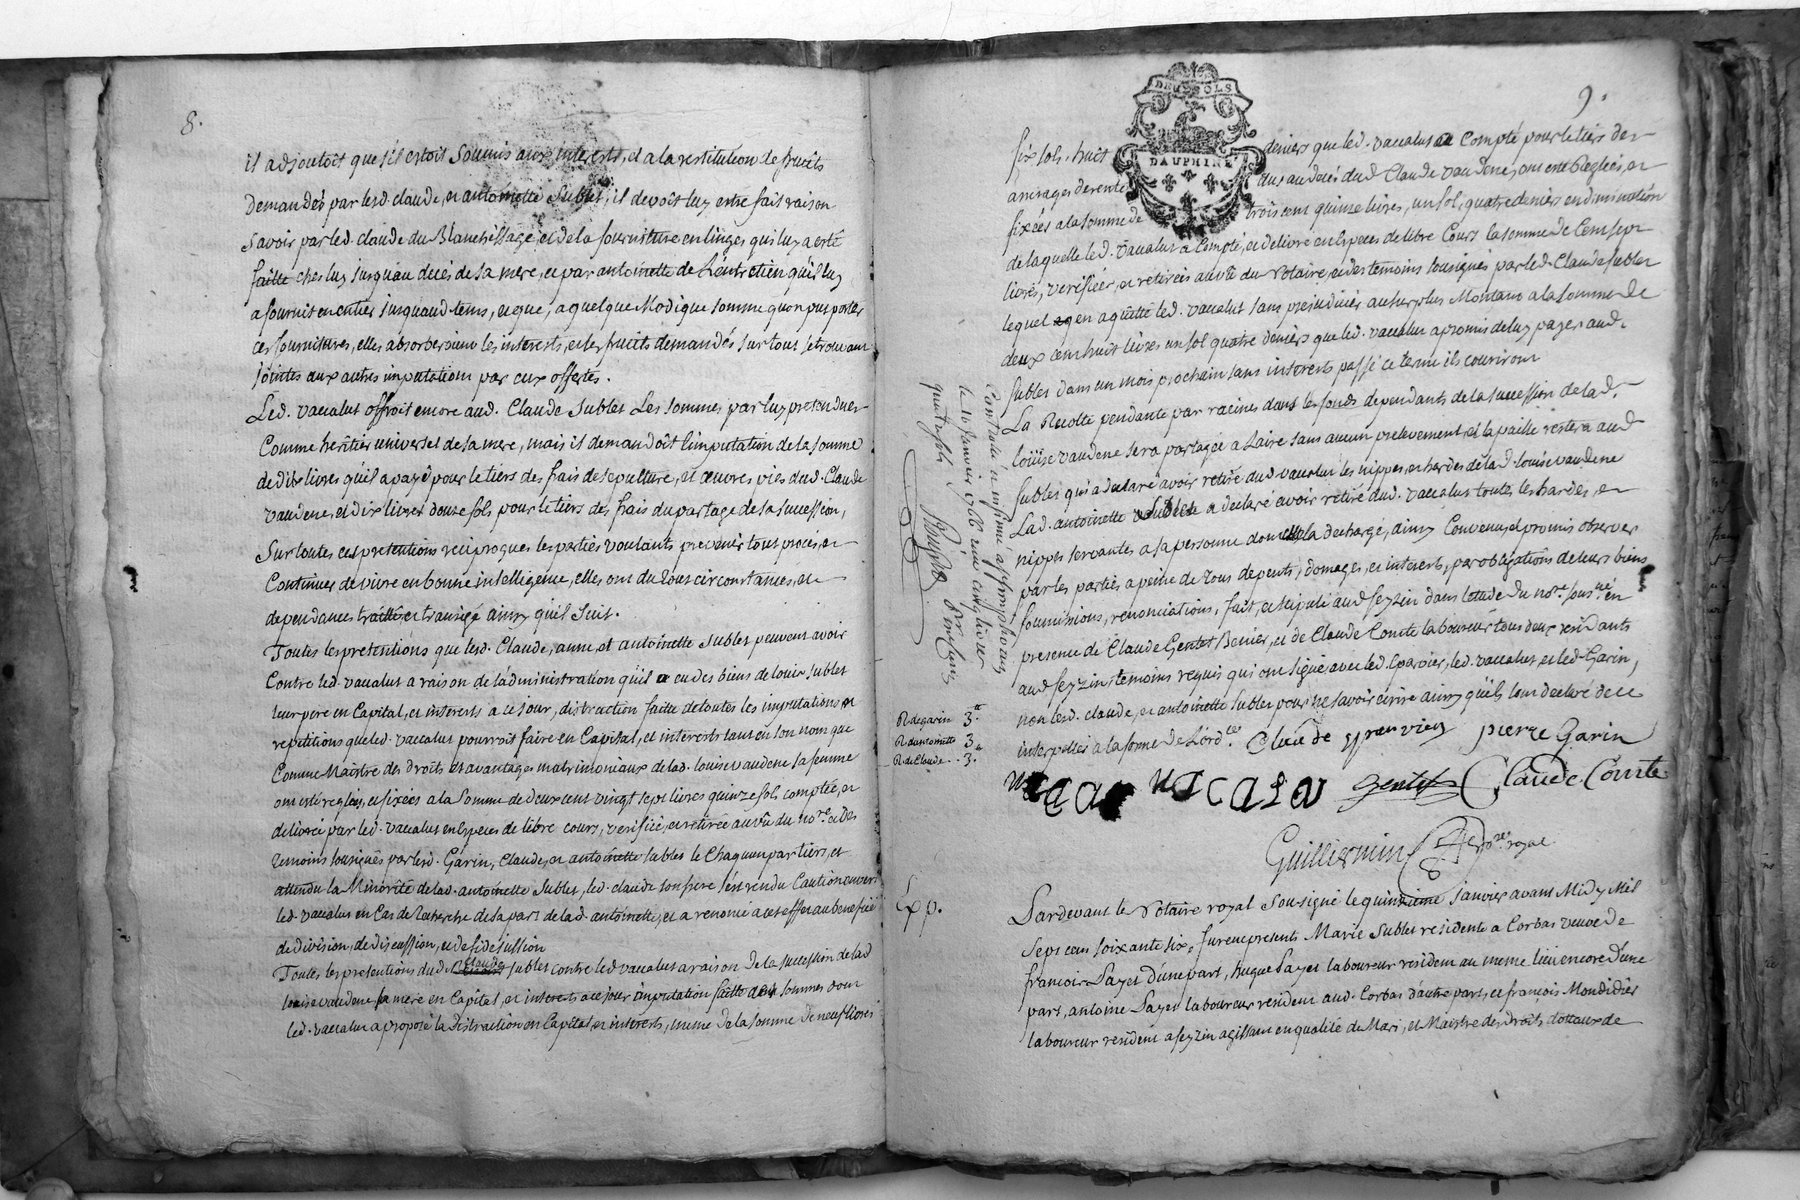 8.
il adjoutoit que s'il estoit soumis aux interests, et a la restitution de fruits
demandés par lesd. claude, et antoinette Sublet, il devoit luy estre fait raison
Savoir par led. claude du Blanchissage, et de la fourniture en linges qui luy a esté
faitte chez luy jusqu'au decés de sa mere, et par antoinette de L'entretien qu'il luy
a fourni en entier jusqu'aud. tems, et que, a quelque Modique somme qu'on put porter
ces fournitures, elles absorberoient les interests, et les fruits demandés surtout se trouvant
jointes aux autres imputations par eux offertes.
Led. vacalut offroit encore aud. Claude Sublet Les sommes par luy pretendues
Comme heritier universel de sa mere, mais il demandoit l'imputation de la somme
de dix livres qu'il a payé pour le tiers des frais de sepulture, et œuvres pies dud. Claude
vaudene, et dix livres douze sols, pour le tiers des frais du partage de sa succession,
Sur toutes ces pretentions reciproques les parties voulants prevenir tout procés, et
Continuer de vivre en bonne intelligence, elles ont du tout circonstances, et
dependances traitté et transigé ainsy qu'il Suit.
Toutes les pretentions que lesd. Claude, anne, et antoinette Sublet peuvent avoir
Contre led. vacalut a raison de l'administration qu'il a eu des biens de louis Sublet
leur pere en Capital, et interests a ce jour, distraction faitte de toutes les imputations et
repetitions que led. vacalut pourroit faire en Capital, et interests tant en son nom que
Comme Maistre des droits et avantages matrimoniaux de lad. louise vaudene sa femme
ont esté reglés, et fixées a la Somme de deux cent vingt sept livres quinze sols comptée, et
delivrée par led. vacalut en Especes de libre cours, verifiée, et retirée au vû du no.re et des
temoins sousignés par lesd. Garin, Claude, et antoinette sublet le Chaquun par tiers, et
attendu la Minorité de lad. antoinette Sublet, led. claude son frere s'est rendu Caution envers
led. vacalut en Cas de recherche de sa part de lad. antoinette, et a renoncé a cet effet au benefice
de division, de discussion, et de fidejussion
Toutes les pretentions dud. Claude sublet contre led. vacalut a raison de la succession de lad
louise vaudene sa mere en Capital, et interests a ce jour imputation faitte des sommes dont
led. vacalut a proposé la Distraction en Capital et interests, même de la somme de neuf livres
9.
DEUX SOLS
DAUPHINE
six sols, huit deniers que led. vacalut a Compté pour le tiers des
arrerages de rente dus au decés dud Claude vaudene, ont esté Reglées, et
fixées a la somme de trois cent quinze livres, un sol, quatre deniers en diminution
de laquelle led. vacalut a Compté, et delivré en Especes de libre Cours la somme de Cent sept
livres, verifiée, et retirée au vû du Notaire, et des temoins sousignés par led. Claude sublet
lequel en a quitté led. vacalut sans prejudicier au surplus Montant a la somme de
deux cent huit livres un sol quatre deniers que led. vacalut a promis de luy payer aud.
Sublet dans un mois prochain sans interests passé ce terme ils courriront
La Recolte pendante par racines dans les fonds dependants de la succession de lad.
loüise vaudene sera partagée a L'aire sans aucun prelevement, et la paille restera aud
Sublet qui a declaré avoir retiré dud vacalut les nippes, et hardes de lad. louise vaudene
Lad. antoinette Sublet a declaré avoir retiré dud. vacalut toutes les hardes, et
nippes servantes a sa personne dont elle la decharge, ainsy Convenu, et promis observer
par les parties a peine de tous depents, domages, et interests, par obligations de leurs biens
soumissions, renonciations, fait, et stipulé aud feyzin dans l'etude du no.re sous.né en
presence de Claude Gentet Benier, et de Claude Comte laboureur tous deux residants
aud feyzin temoins requis qui ont signé avec led. Eparvier, led. vacalut et led. Garin,
non lesd. claude, et antoinette sublet pour ne savoir ecrire ainsy qu'ils l'ont declaré de ce
interpellés a la forme de L'ord.ce
Claude Eparvier pierre Garin
gentet Claude Comte
Guillermin no.re royal
Controllé a
le 10 Janvier 1766 reçu cinq livres
quatre sols
R. de garin 3.tt
R. d'antoinette 3.tt
R. de Claude 3.
Exp.
Pardevant le Notaire royal Sousigné le quinzieme janvier avant Midy Mil
Sept cens soixante six, furent presents Marie Sublet residente a Corbas veuve de
françois Payet d'une part, hugue Payet laboureur resident au meme lieu encore d'une
part, antoine Payet laboureur resident aud. Corbas d'autre part, et françois Mondidier
laboureur resident a feyzin agissant en qualité de Mari, et Maistre des droits dotteaux de